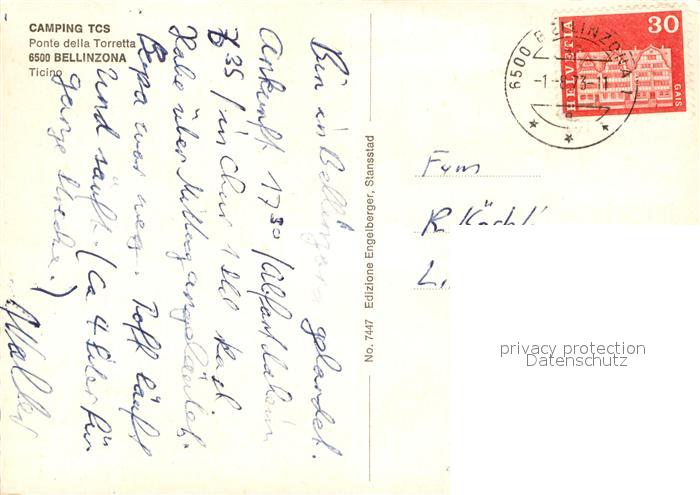 CAMPING TCS
Ponte della Torretta
6500 BELLINZONA
Ticino
Bin in Bellinzona gelandet.
Ankunft 1730 / Abfart daheim
735 / in Chur 1 Std
Habe über Mittag angeläutet.
Bepa war weg. Töff läuft
und säuft. (Ca 4 Liter für
ganze Strecke.)
Walter
No. 7447 Edizione Engelberger, Stansstad
6500 BELLINZONA 1
-1.-8.73-11
HELVETIA
30
GAIS
Fam
R. Köchli
L.
privacy protection
Datenschutz